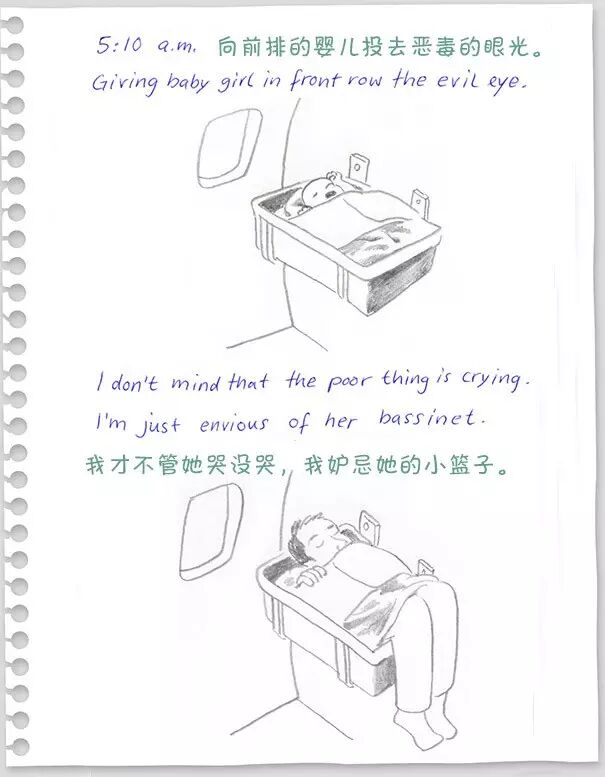 5:10 a.m. 向前排的婴儿投去恶毒的眼光。
Giving baby girl in front row the evil eye.
I don't mind that the poor thing is crying.
I'm just envious of her bassinet.
我才不管她哭没哭,, 我妒忌她的小篮子。